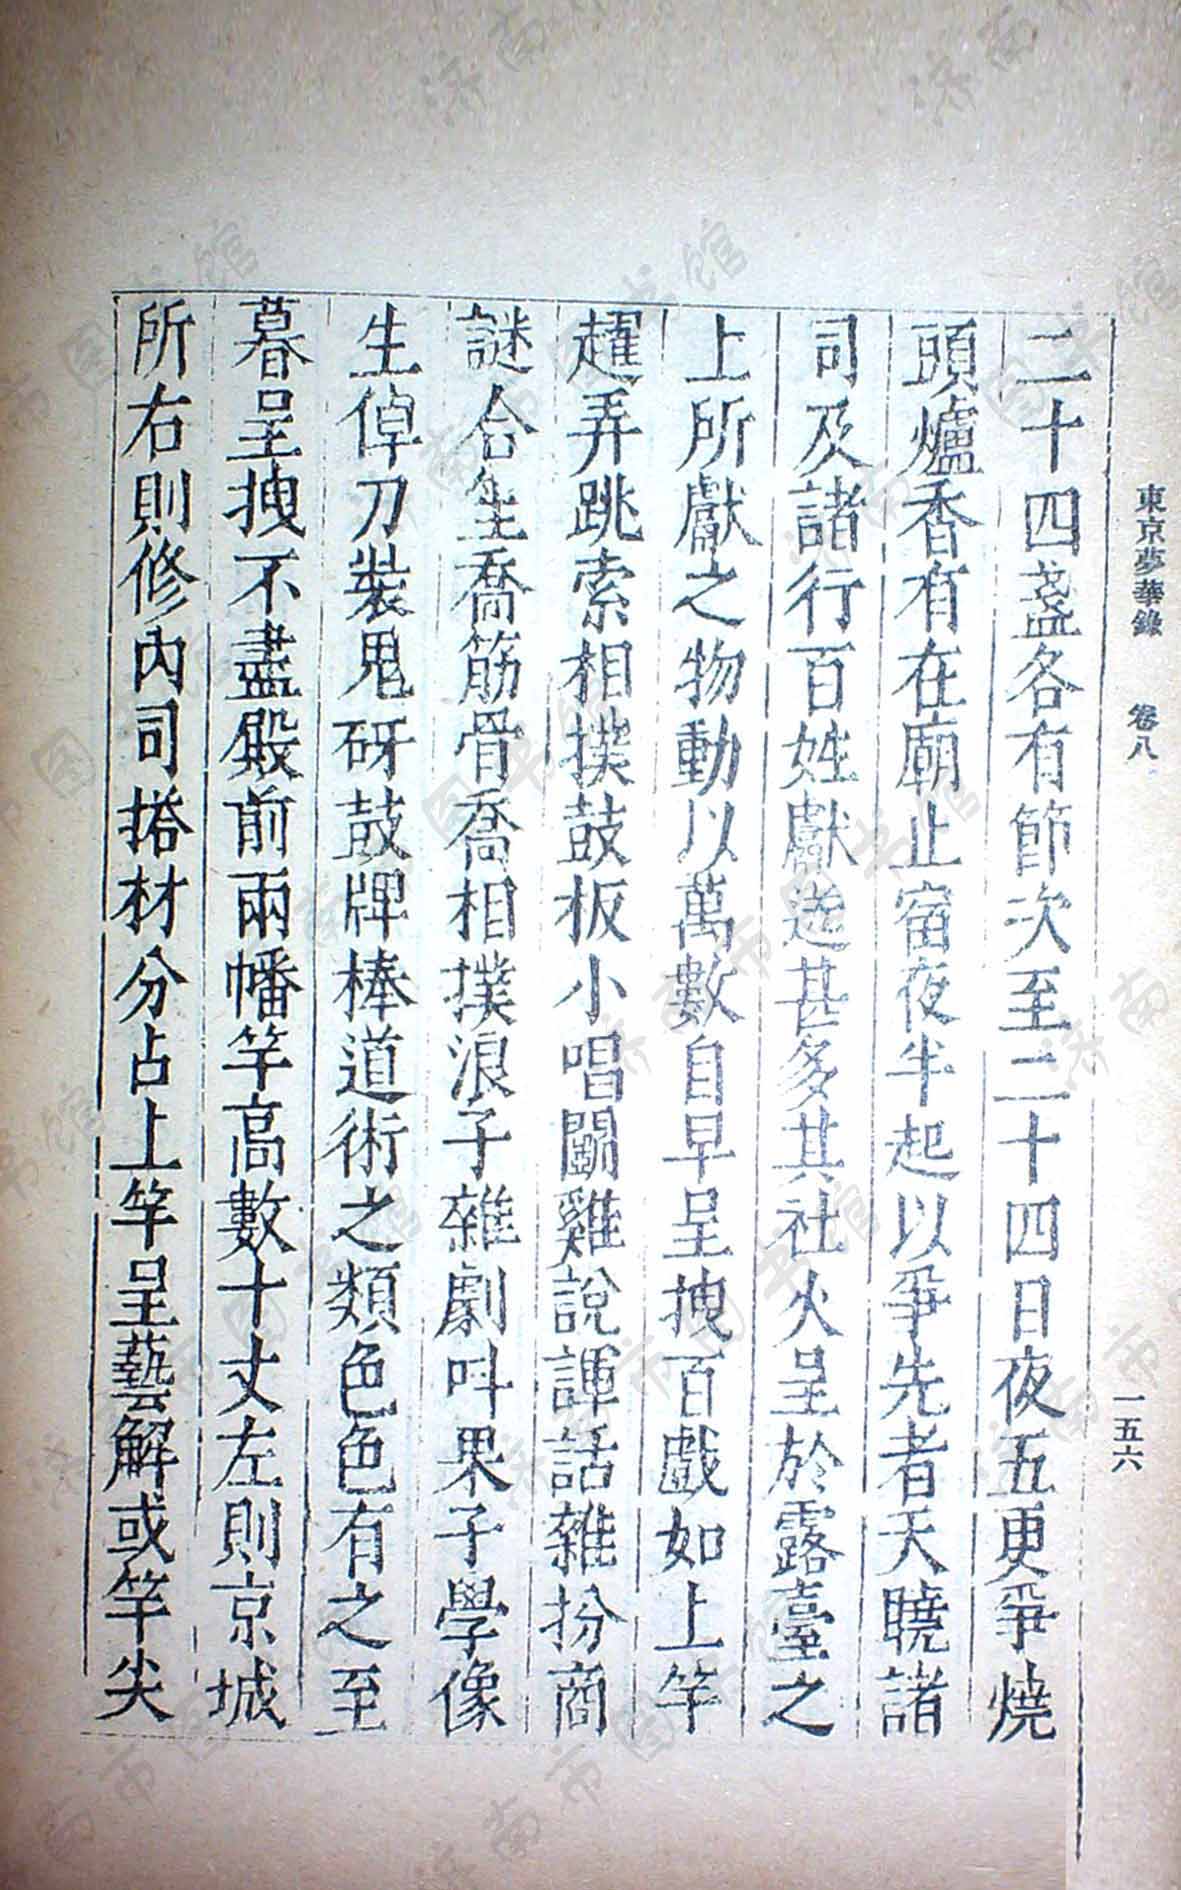 東京夢華錄 卷八 一五六
二十四盞各有節次至二十四日夜五更爭燒
頭爐香有在廟止宿夜半起以爭先者天曉諸
司及諸行百姓獻送甚多其社火呈於露臺之
上所獻之物動以萬數自早呈拽百戲如上竿
趯弄跳索相撲鼓板小唱鬬雞說諢話雜扮商
謎合生喬筋骨喬相撲浪子雜劇叫果子學像
生倬刀裝鬼砑鼓牌棒道術之類色色有之至
暮呈拽不盡殿前兩幡竿高數十丈左則京城
所右則修內司搭材分占上竿呈藝解或竿尖
济南市图书馆